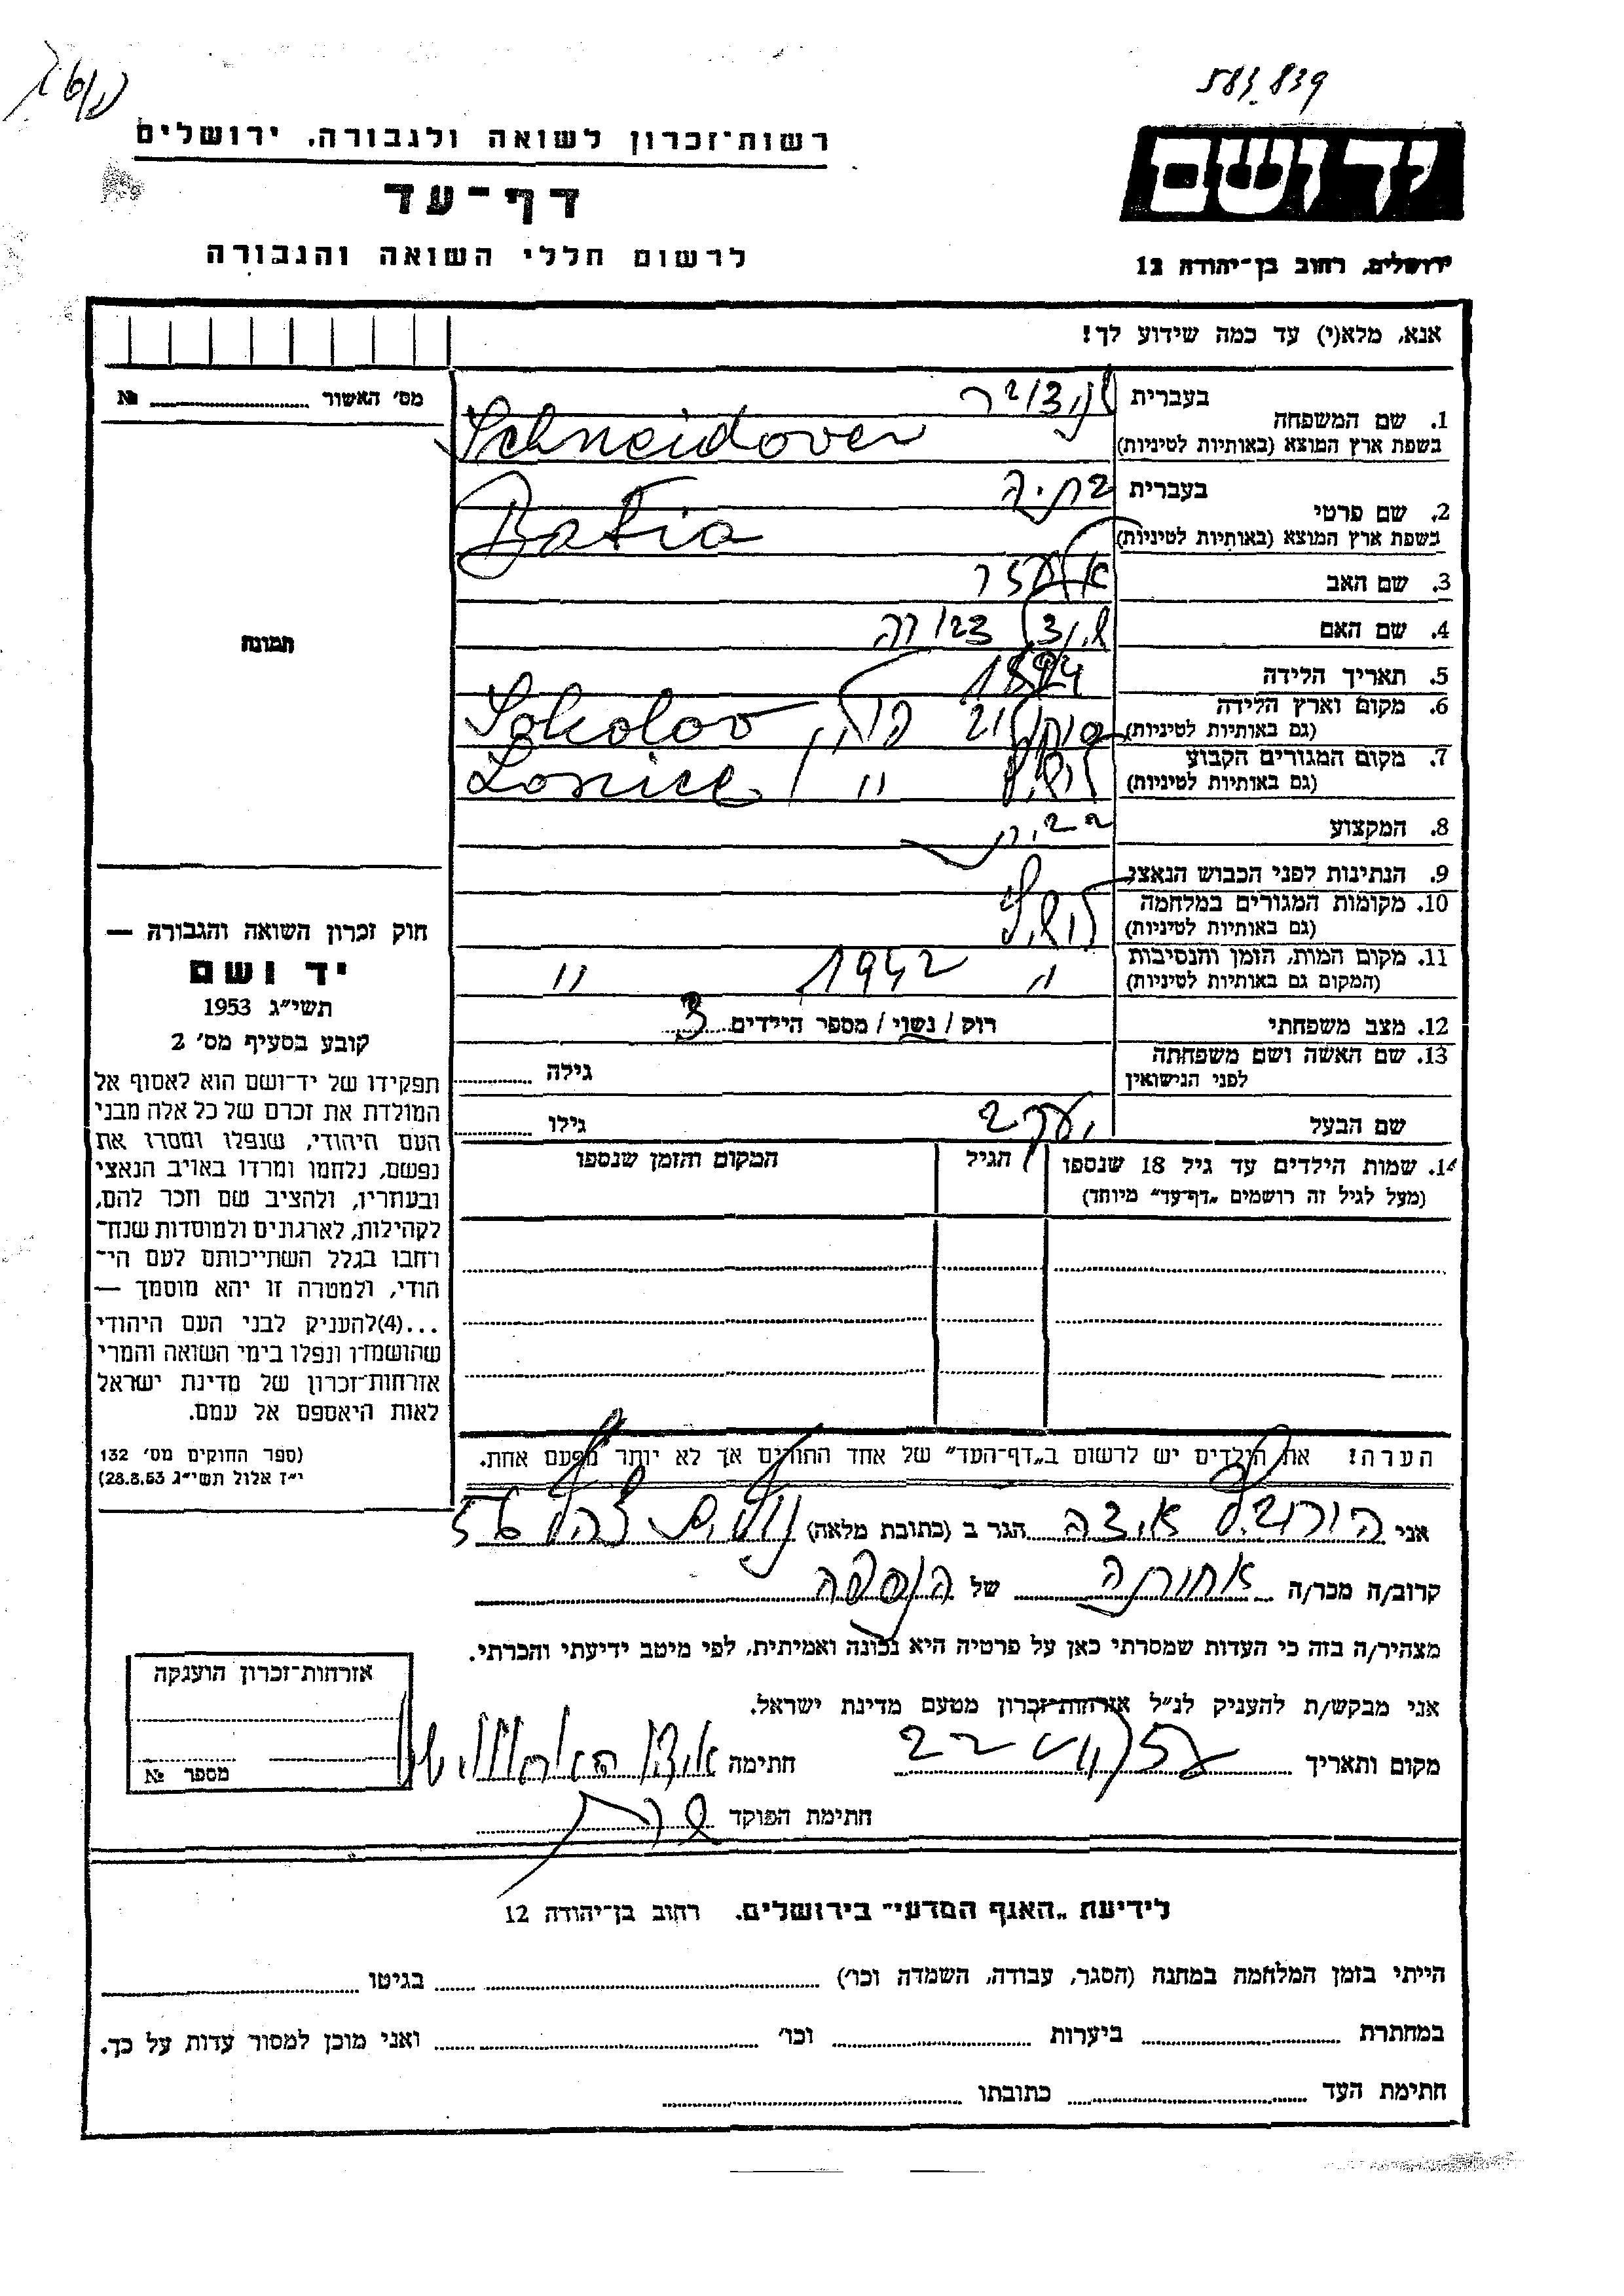 583.839
יד ושם
רשות־זכרון לשואה ולגבורה, ירושלים
דף־עד
לרשום חללי השואה והגבורה
ירושלים, רחוב בן־יהודה 12
אנא, מלא(י) עד כמה שידוע לך!
מס' האשור № 
תמונה
1. שם המשפחה
בעברית
בשפת ארץ המוצא (באותיות לטיניות) Schneidover
2. שם פרטי
בעברית בתיה
בשפת ארץ המוצא (באותיות לטיניות) Batia
3. שם האב
4. שם האם
5. תאריך הלידה
6. מקום וארץ הלידה (גם באותיות לטיניות) Sokolov
7. מקום המגורים הקבוע (גם באותיות לטיניות) "
8. המקצוע
9. הנתינות לפני הכבוש הנאצי
10. מקומות המגורים במלחמה (גם באותיות לטיניות)
11. מקום המות, הזמן והנסיבות (המקום גם באותיות לטיניות) " 1942 "
12. מצב משפחתי רוק / נשוי / מספר הילדים 3
13. שם האשה ושם משפחתה לפני הנישואין גילה
שם הבעל יעקב גילו
14. שמות הילדים עד גיל 18 שנספו
(מעל לגיל זה רושמים „דף־עד” מיוחד)
הגיל
המקום והזמן שנספו
חוק זכרון השואה והגבורה —
יד ושם
תשי״ג 1953
קובע בסעיף מס' 2
תפקידו של יד־ושם הוא לאסוף אל
המולדת את זכרם של כל אלה מבני
העם היהודי, שנפלו ומסרו את
נפשם, נלחמו ומרדו באויב הנאצי
ובעוזריו, ולהציב שם וזכר להם,
לקהילות, לארגונים ולמוסדות שנח־
רחבו בגלל השתייכותם לעם הי־
הודי, ולמטרה זו יהא מוסמך —
...(4)להעניק לבני העם היהודי
שהושמדו ונפלו בימי השואה והמרי
אזרחות־זכרון של מדינת ישראל
לאות היאספם אל עמם.
(ספר החוקים מס' 132
י״ז אלול תשי״ג 28.8.53)
הערה! את הילדים יש לרשום ב„דף־העד” של אחד ההורים אך לא יותר מפעם אחת.
אני הורוביץ איצה הגר ב (כתובת מלאה)
קרוב/ה מכר/ה אחותה של הנספה
מצהיר/ה בזה כי העדות שמסרתי כאן על פרטיה היא נכונה ואמיתית, לפי מיטב ידיעתי והכרתי.
אני מבקש/ת להעניק לנ״ל אזרחות־זכרון מטעם מדינת ישראל.
מקום ותאריך חתימה
חתימת הפוקד
אזרחות־זכרון הוענקה
מספר №
לידיעת „האגף המדעי” בירושלים. רחוב בן־יהודה 12
הייתי בזמן המלחמה במחנה (הסגר, עבודה, השמדה וכו') בגיטו
במחתרת ביערות וכו' ואני מוכן למסור עדות על כך.
חתימת העד כתובתו